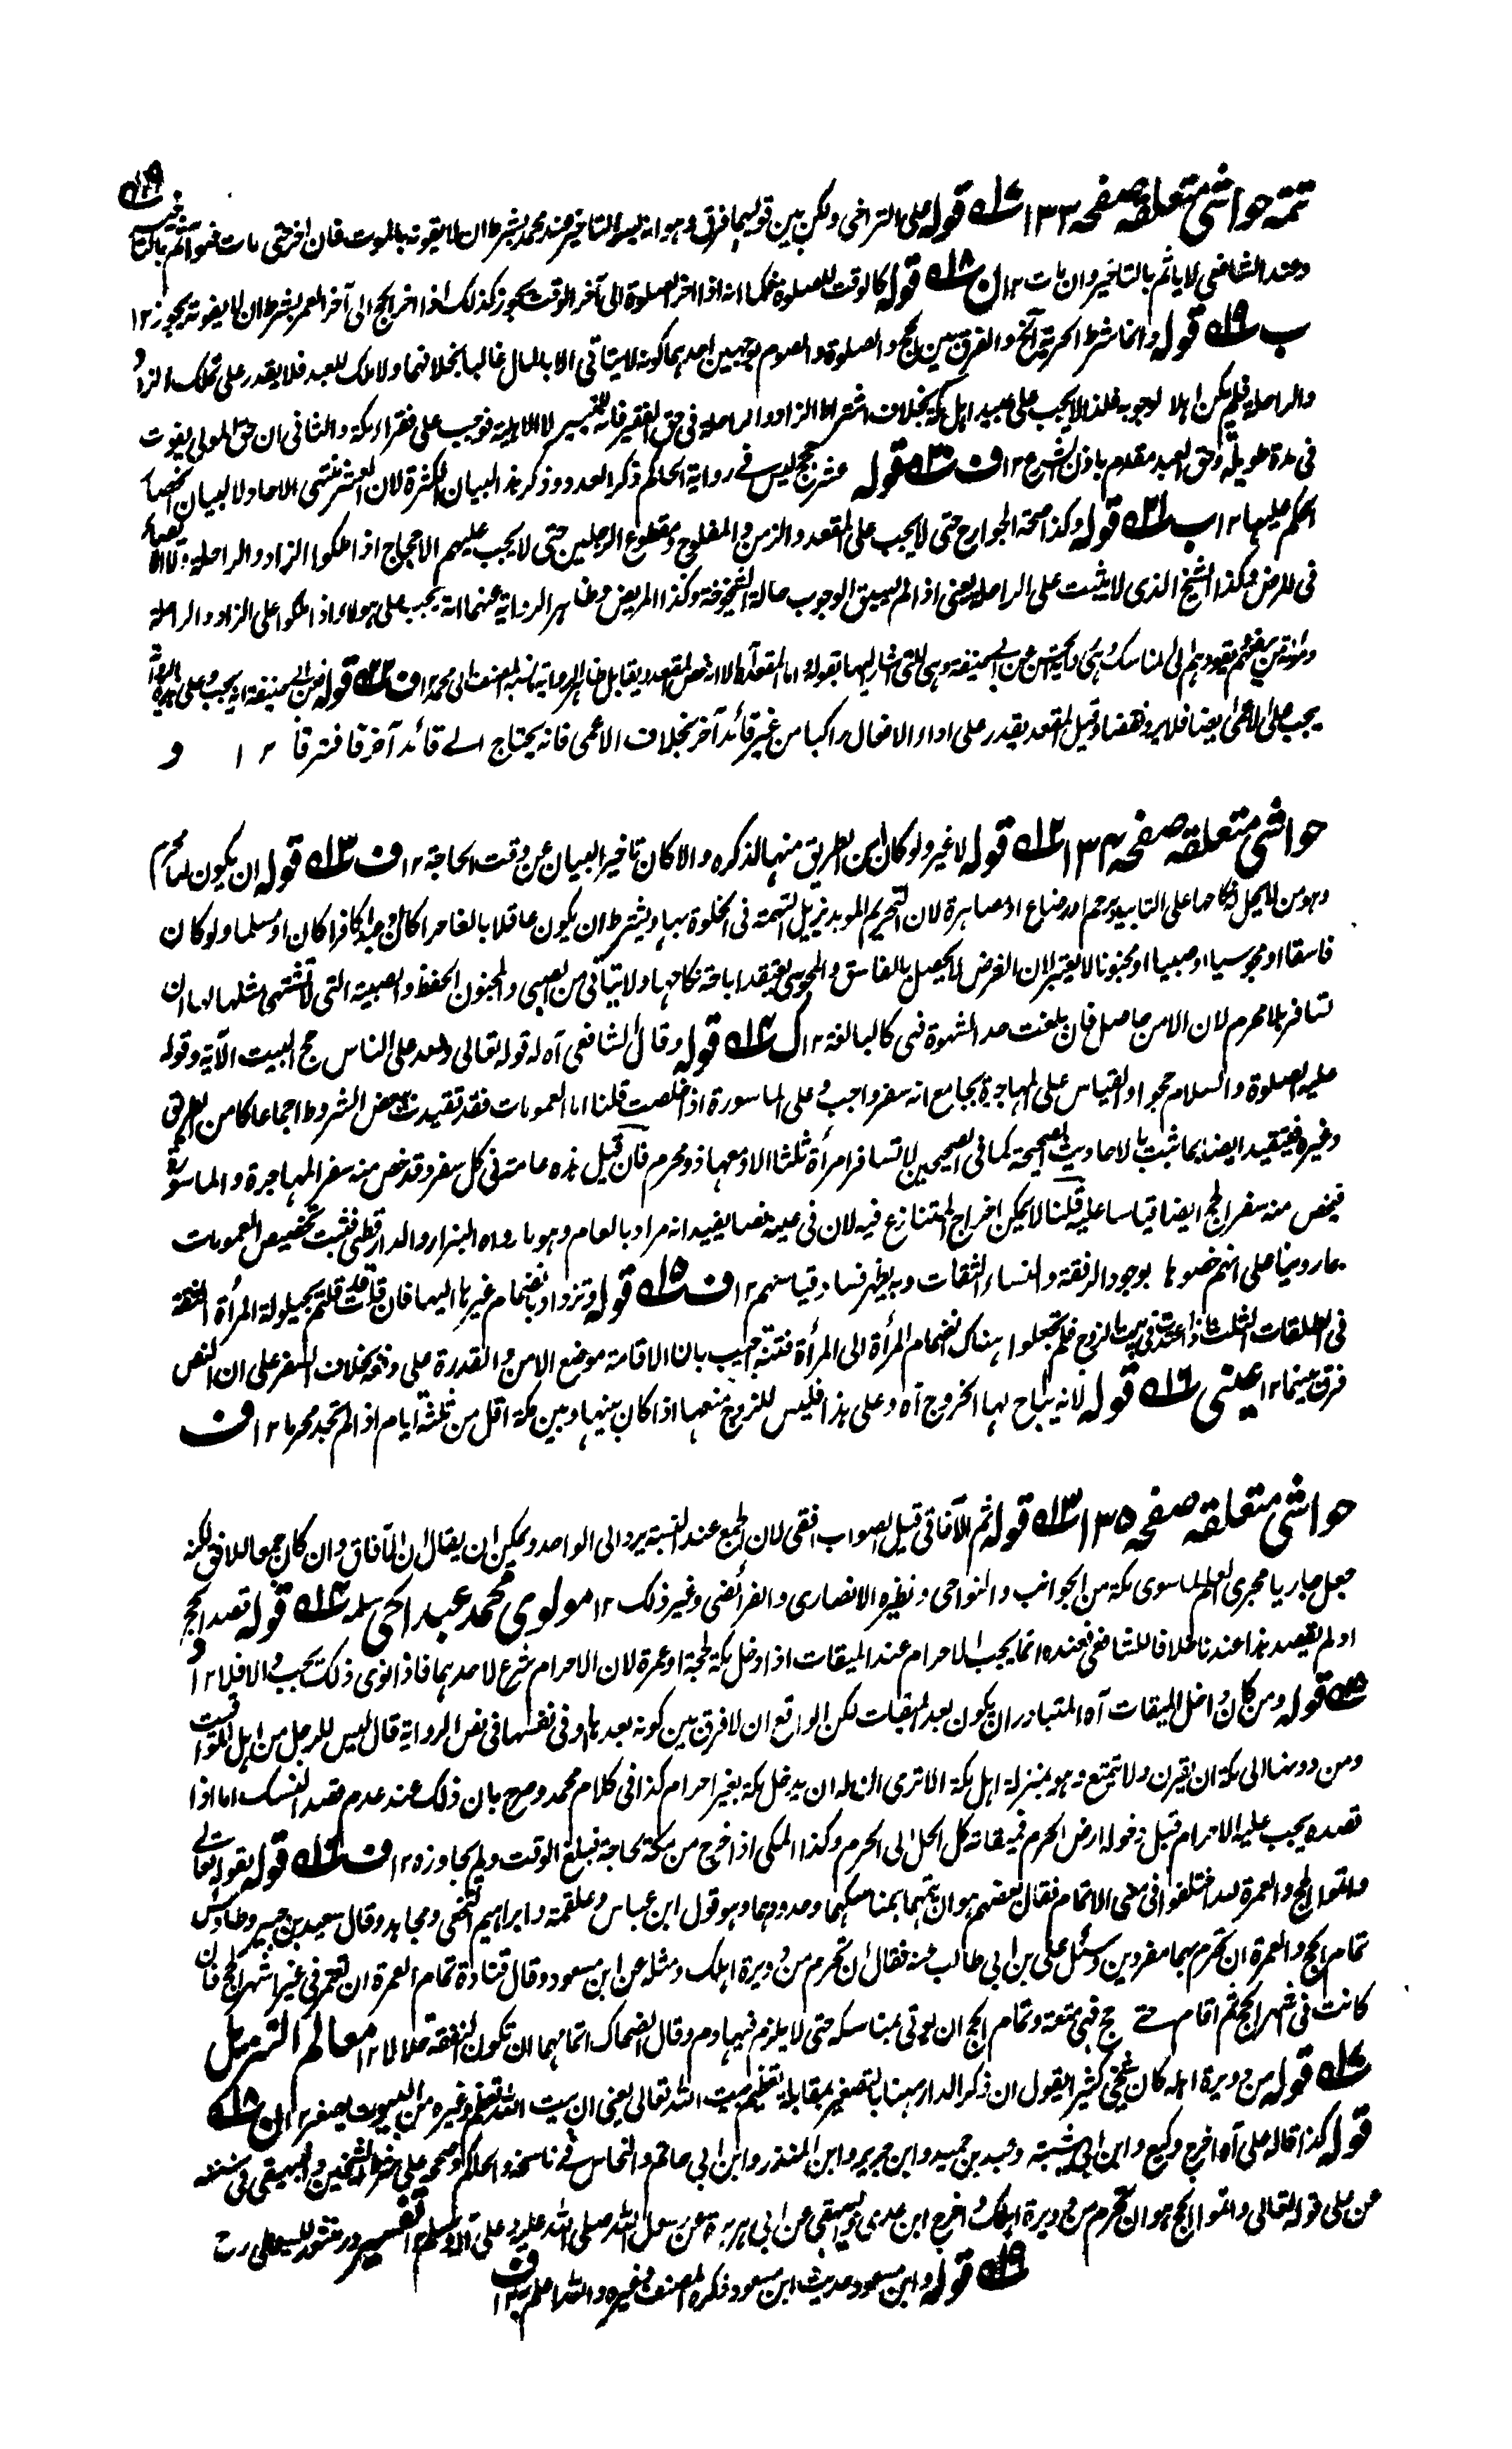 تتمه حواشی متعلقه صفحه ۱۳۳ ۱۷ قوله على التراخى ولكن بين قوليهما فرق وهو انه يسع التاخير عند محمد بشرط ان لا يفوته بالموت فان اخر حتى مات فهو آثم بالتاخير
وعند الشافعى لا ياثم بالتاخير وان مات ۱۲ ن ۱۸ قوله كالوقت للصلوة فكما انه اذا اخر الصلوة الى آخر الوقت يجوز كذلك اذا اخر الحج الى آخر العمر بشرط ان لا يفوته يجوز ۱۲
ب ۱۹ قوله وانما شرط الحرية آلخ والفرق بين الحج والصلوة والصوم بوجهين احدهما كونه لا يتاتى الا بالمال غالبا بخلافهما ولا ملك للعبد فلا يقدر على تملك الزاد
والراحلة فلم يكن اهلا لوجوبه فلذا لا يجب على عبيد اهل مكة بخلاف اشتراط الزاد والراحلة فى حق الفقير فانه للتيسير لا للاهلية فوجب على فقراء مكة والثانى ان حق المولى يفوت
فى مدة طويلة وحق العبد مقدم باذن الشرع ۱۲ ف ۲۰ قوله عشر حجج ليس فے رواية الحاكم ذكر العدد وذكر هذ البيان الكثرة لان العشر منتهى الاحاد لا لبيان انحصار
الحكم عليها ۱۲ ب ۲۱ قوله وكذا صحة الجوارح حتى لا يجب على المقعد والزمن والمفلوج ومقطوع الرجلين حتى لا يجب عليهم الاحجاج اذا ملكوا الزاد والراحلة ولا الايصاء
فى المرض وكذا الشيخ الذى لا يثبت على الراحلة يعنى اذا لم يسبق الوجوب حالة الشيخوخة وكذا المريض وظاهر الرواية عنهما انه يجب على هولاء اذا ملكوا على الزاد والراحلة
ومؤنة من يرفعهم ويقودهم الى المناسك وهى رواية الحسن عن ابى حنيفة وهى التى اشار اليها بقوله واما المقعد آه الا انه خص المقعد ويقابل ظاهر الرواية ما نسبه المصنف الى محمد ۱۲ ف ۲۲ قوله فعن ابى حنيفة انه يجب على هذه الرواية
يجب على الاعمى ايضا فلا يرد نقضا وقيل المقعد يقدر على اداء الافعال راكبا من غير قائد آخر بخلاف الاعمى فانه يحتاج الے قائد آخر فافترقا ۱۲ و
حواشی متعلقه صفحه ۱۳۴ ۱۲ قوله لا غير ولو كان امن الطريق منها لذكره والا كان تاخير البيان عن وقت الحاجة ۱۲ ف ۱۳ قوله ان يكون لها محرم
وهو من لا يحل له نكاحها على التابيد برحم او رضاع او مصاهرة لان التحريم الموبد يزيل التهمة فى الخلوة بها ويشترط ان يكون عاقلا بالغا حرا كان او عبدا كافرا كان او مسلما ولو كان
فاسقا او مجوسيا او صبيا او مجنونا لا يعتبر لان الغرض لا يحصل بالفاسق والمجوسى يعتقد اباحة نكاحها ولا يتاتى من الصبى والمجنون الحفظ والصبية التى لا تشتهى مثلها لها ان
تسافر بلا محرم لان الامن حاصل فان بلغت حد الشهوة فهى كالبالغة ۱۲ ک ۱۴ قوله وقال الشافعى آه له قوله تعالى ولله على الناس حج البيت الآية وقوله
عليه الصلوة والسلام حجوا والقياس على المهاجرة بجامع انه سفر واجب وعلى الماسورة اذا خلصت قلنا اما العمومات فقد تقيدت ببعض الشروط اجماعا كامن الطريق
وغيره فتتقيد ايضا بما ثبت بالاحاديث الصحيحة كما فى الصحيحين لا تسافر امرأة ثلثا الا ومعها ذو محرم فان قيل هذه عامة فى كل سفر وقد خص منه سفر المهاجرة والماسورة
فيخص منه سفر الحج ايضا قياسا عليه قلنا لا يمكن اخراج المتنازع فيه لان فى عينه نصا يفيد انه مراد بالعام وهو ما رواه البزار والدارقطنى فثبت تخصيص العمومات
بما روينا على انهم خصوها بوجود الرفقة والنساء الثقات وبه يظهر فساد قياسهم ۱۲ ف ۱۵ قوله وتزداد بانضمام غيرها اليها فان قلت قلتم بحيلولة المرأة الثقة
فى الطلقات الثلث اذا اعتدت فى بيت الزوج فلم تجعلوا هناك انضمام المرأة الى المرأة فتنة اجيب بان الاقامة موضع الامن والقدرة على دفعه بخلاف السفر على ان النص
فرق بينهما ۱۲ عينى ۱۶ قوله لانه يباح لها الخروج آه وعلى هذا فليس للزوج منعها اذا كان بينها وبين مكة اقل من ثلثة ايام اذا لم تجد محرما ۱۲ ف
حواشی متعلقه صفحه ۱۳۵ ۱۳ قوله ثم الآفاقى قيل الصواب افقى لان الجمع عند النسبة يرد الى الواحد ويمكن ان يقال ان الآفاق وان كان جمعا للافق لكنه
جعل جاريا مجرى العلم لما سوى مكة من الجوانب والنواحى ونظيره الانصارى والفرائضى وغير ذلك ۱۲ مولوى محمد عبد الحى سلمه ۱۴ قوله قصد الحج
او لم يقصد هذا عندنا خلافا للشافعى فعنده انما يجب الاحرام عند الميقات اذا دخل مكة لحجة او عمرة لان الاحرام شرع لاحدهما فاذا نوى ذلك يجب والا فلا ۱۲ و
۱۵ قوله ومن كان داخل الميقات آه المتبادر ان يكون بعد الميقات لكن الواقع ان لا فرق بين كونه بعدها او فى نفسها فى نص الرواية قال ليس للرجل من اهل المواقيت
ومن دونها الى مكة ان يقرن ولا يتمتع وهو بمنزلة اهل مكة الا ترى ان له ان يدخل مكة بغير احرام كذا فى كلام محمد وصرح بان ذلك عند عدم قصد النسك اما اذا
قصده يجب عليه الاحرام قبل دخوله ارض الحرم فميقاته كل الحل الى الحرم وكذا المكى اذا خرج من مكة لحاجة فبلغ الوقت ولم يجاوزه ۱۲ ف ۱۶ قوله لقوله تعالے
واتموا الحج والعمرة لله اختلفوا فى معنى الاتمام فقال بعضهم هو ان يتمهما بمناسكهما وحدودهما وهو قول ابن عباس وعلقمة وابراهيم النخعى ومجاهد وقال سعيد بن جبير وطاوس
تمام الحج والعمرة ان تحرم بهما مفردين وسئل على بن ابى طالب عنه فقال ان تحرم من دويرة اهلك ومثله عن ابن مسعود وقال قتادة تمام العمرة ان تعتمر فى غير اشهر الحج فان
كانت فى اشهر الحج ثم اقام حتے حج فهى متعة وتمام الحج ان يوتى بمناسكه حتى لا يلزم فيها دم وقال الضحاك اتمامهما ان تكون النفقة حلالا ۱۲ معالم التنزيل
۱۷ قوله من دويرة اهله كان شيخى كثيرا يقول ان ذكر الدار ههنا بالتصغير بمقابلة تعظيم بيت الله تعالى يعنى ان بيت الله تعظم وغيره من البيوت يصغر ۱۲ ن ۱۸
قوله كذا قاله على آه اخرج وكيع وابن ابى شيبة وعبد بن حميد وابن جرير وابن المنذر وابن ابى حاتم والنحاس فے ناسخه والحاكم وصححه على شرط الشيخين والبيهقى فى سننه
عن على قوله تعالى واتموا الحج هو ان تحرم من دويرة اهلك واخرج ابن عدى والبيهقى عن ابى هريرة عن رسول الله صلى الله عليه وعلى آله وسلم ۱۲ تفسير در منثور للسيوطى رح
۱۹ قوله وابن مسعود حديث ابن مسعود ذكره المصنف وغيره والله اعلم به ۱۲ ف